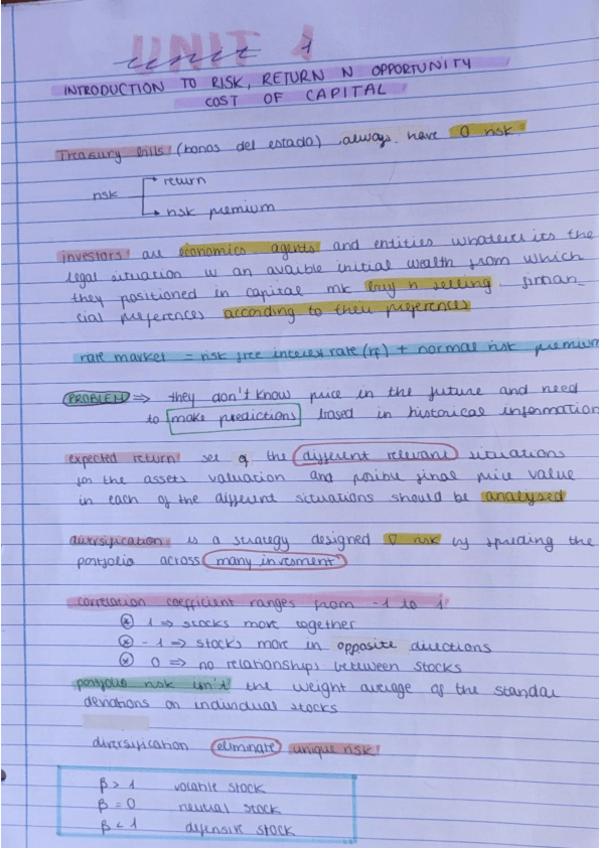 UNIT 1
unit 1
INTRODUCTION TO RISK, RETURN N OPPORTUNITY
COST OF CAPITAL
Treasury bills (bonos del estado) always have 0 risk.
risk → return
→ risk premium
investors are economics agents and entities whatever its the
legal situation w an avaible initial wealth from which
they positioned in capital mk buy n selling finan_
cial preferences according to their preferences
rate market = risk free interest rate (rf) + normal risk premium
PROBLEM ⇒ they don't know price in the future and need
to make predictions based in historical information
expected return set of the different relevant situations
for the assets valuation and posible final price value
in each of the different situations should be analysed
diversification is a strategy designed ∇ risk by spreding the
portfolio across many invesment
correlation coefficient ranges from -1 to 1
⊛ 1 ⇒ stocks move together
⊛ -1 ⇒ stocks move in opposite directions
⊛ 0 ⇒ no relationships between stocks
portfolio risk isn't the weight average of the standar
deviations on individual stocks
diversification eliminate unique risk!
β > 1 volatile stock
β = 0 neutral stock
β < 1 defensive stock